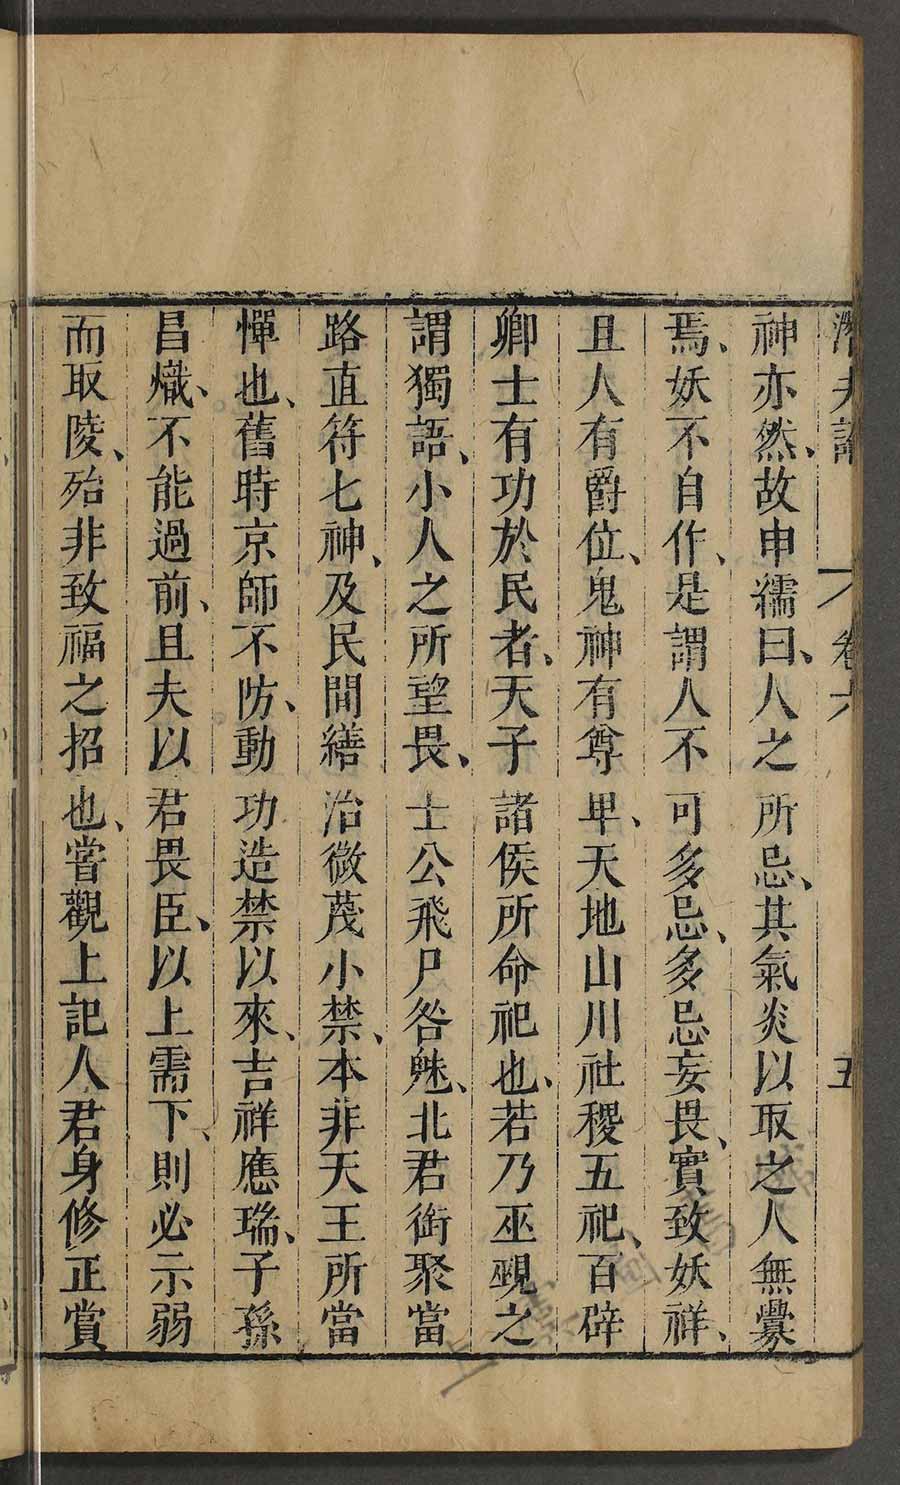 潛夫論 卷六 五
神亦然、故申繻曰、人之所忌、其氣炎以取之人無釁
焉、妖不自作、是謂人不可多忌、多忌妄畏、實致妖祥、
且人有爵位、鬼神有尊卑、天地山川社稷五祀、百辟
卿士有功於民者、天子諸侯所命祀也、若乃巫覡之
謂獨語、小人之所望畏、士公飛尸咎魅、北君銜聚當
路直符七神、及民間繕治微蔑小禁、本非天王所當
憚也、舊時京師不防、動功造禁以來、吉祥應瑞、子孫
昌熾、不能過前、且夫以君畏臣、以上需下、則必示弱
而取陵、殆非致福之招也、嘗觀上記人君身修正賞